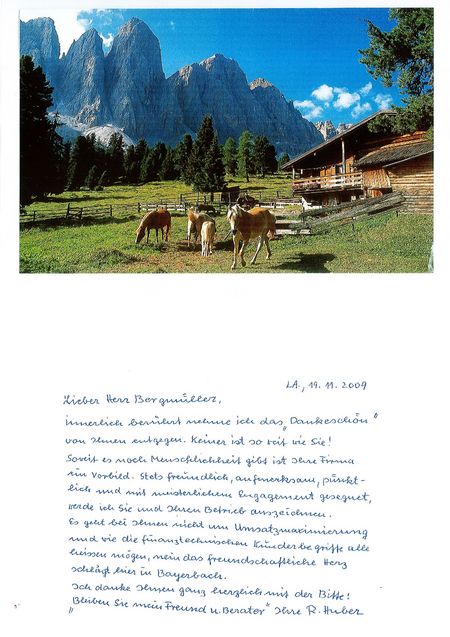 LA., 19.11.2009
Lieber Herr Bergmüller,
innerlich berührt nehme ich das „Dankeschön"
von Ihnen entgegen. Keiner ist so wie Sie!
Soweit es noch Menschlichkeit gibt ist Ihre Firma
ein Vorbild. Stets freundlich, aufmerksam, pünkt-
lich und mit musterlichem Engagement gesegnet,
werde ich Sie und Ihren Betrieb auszeichnen.
Es geht bei Ihnen nicht um Umsatzmaximierung
und wie die finanztechnischen Kunderbegriffe alle
heissen mögen, nein das freundschaftliche Herz
schlägt hier in Bayerbach.
Ich danke Ihnen ganz herzlich mit der Bitte!
„Bleiben Sie mein Freund u. Berater" Ihre R. Huber